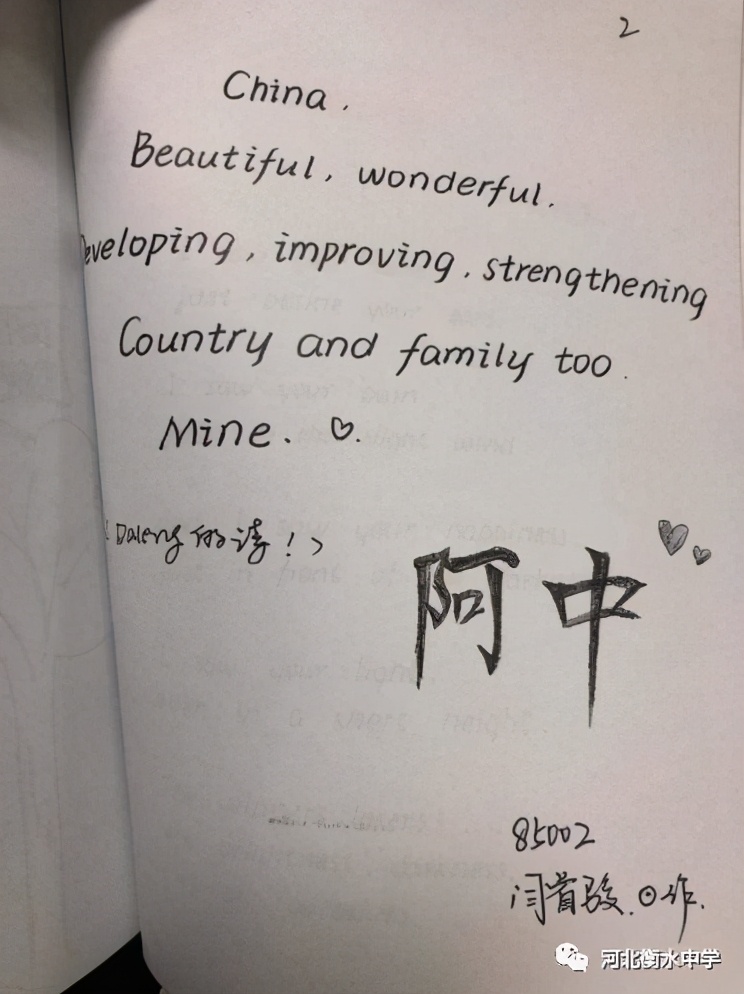 2
China.
Beautiful, wonderful.
Developing, improving, strengthening
Country and family too.
Mine. ♡.
Daleng的诗!)
阿中
85002
闫首骏.⊙作.
河北衡水中学